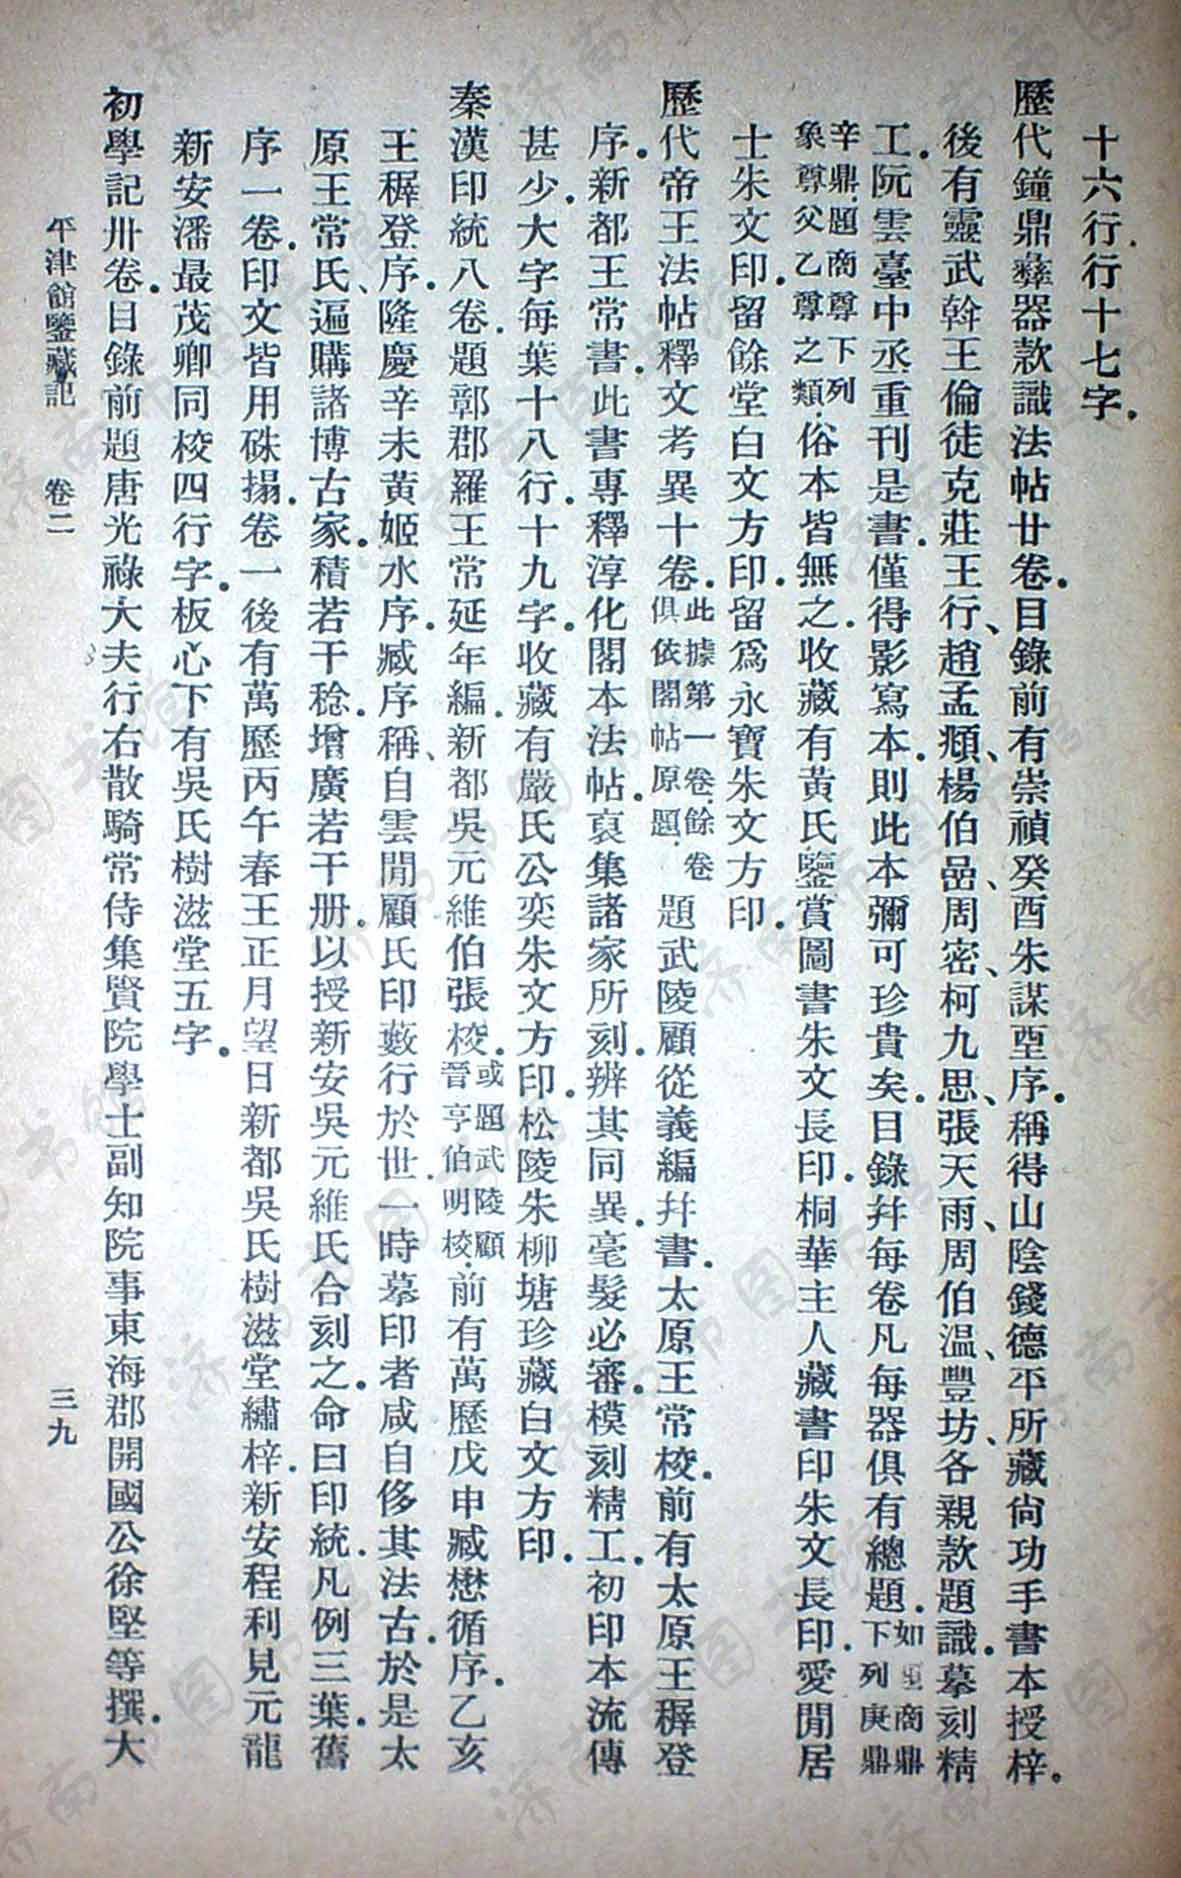 十六行.行十七字.
歷代鐘鼎彝器款識法帖廿卷.目錄前有崇禎癸酉朱謀垔序.稱得山陰錢德平所藏尙功手書本授梓。
後有靈武斡王倫徒克莊王行、趙孟頫、楊伯嵒、周密、柯九思、張天雨、周伯溫、豐坊、各親款題識.摹刻精
工.阮雲臺中丞重刊是書.僅得影寫本.則此本彌可珍貴矣.目錄幷每卷凡每器俱有總題.如題商鼎下列庚鼎
辛鼎.題商尊下列象尊父乙尊之類.俗本皆無之.收藏有黃氏鑒賞圖書朱文長印.桐華主人藏書印朱文長印.愛閒居
士朱文印.留餘堂白文方印.留爲永寶朱文方印.
歷代帝王法帖釋文考異十卷.此據第一卷.餘卷俱依閣帖原題.題武陵顧從義編幷書.太原王常校.前有太原王穉登
序.新都王常書.此書專釋淳化閣本法帖.裒集諸家所刻.辨其同異.毫髮必審.模刻精工.初印本流傳
甚少.大字每葉十八行.十九字.收藏有嚴氏公奕朱文方印.松陵朱柳塘珍藏白文方印.
秦漢印統八卷.題鄣郡羅王常延年編.新都吳元維伯張校.或題武陵顧晉亨伯明校.前有萬歷戊申臧懋循序.乙亥
王穉登序.隆慶辛未黃姬水序.臧序稱、自雲閒顧氏印藪行於世.一時摹印者咸自侈其法古.於是太
原王常氏、遍購諸博古家.積若干稔.增廣若干册.以授新安吳元維氏合刻之.命曰印統.凡例三葉.舊
序一卷.印文皆用硃搨.卷一後有萬歷丙午春王正月望日新都吳氏樹滋堂繡梓.新安程利見元龍
新安潘最茂卿同校四行字.板心下有吳氏樹滋堂五字.
初學記卅卷.目錄前題唐光祿大夫行右散騎常侍集賢院學士副知院事東海郡開國公徐堅等撰.大
平津館鑒藏記 卷二 三九